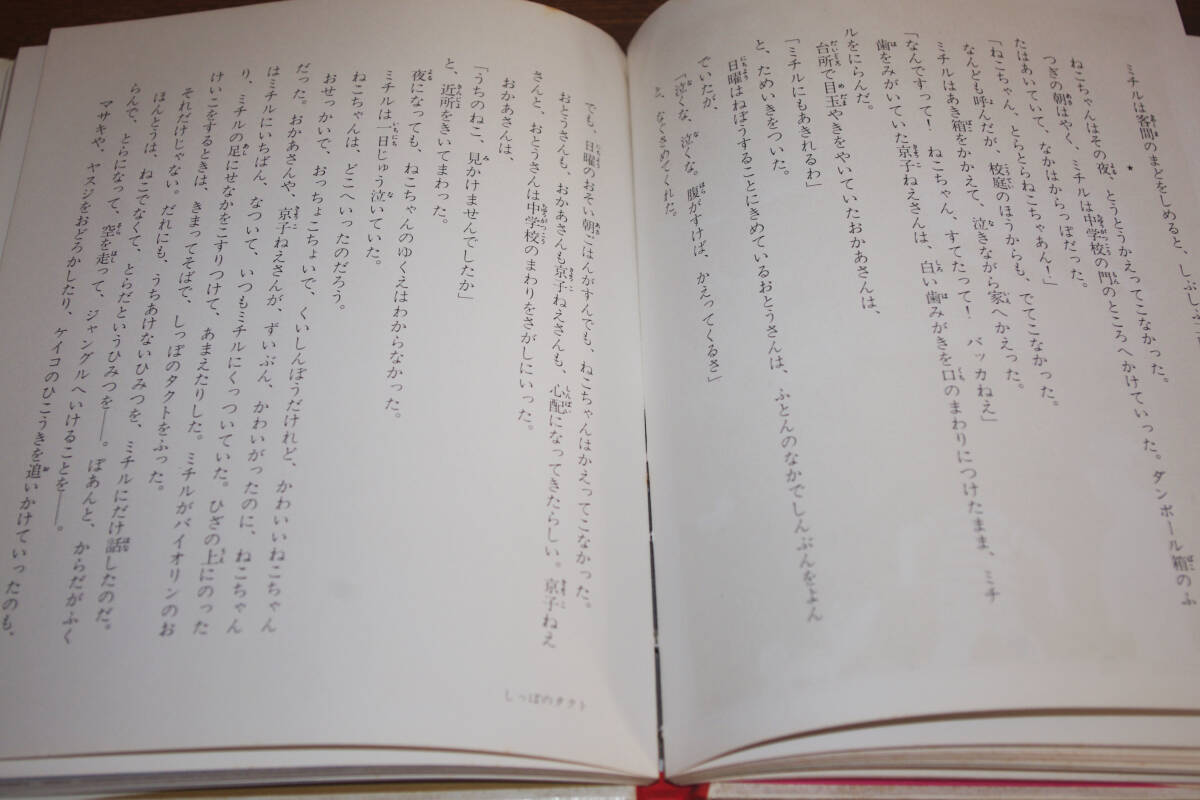 ミチルは客間のまどをしめると、しぶしぶ
★
ねこちゃんはその夜、とうとうかえってこなかった。
つぎの朝はやく、ミチルは中学校の門のところへかけていった。ダンボール箱のふ
たはあいていて、なかはからっぽだった。
「ねこちゃん、とらとらねこちゃあん！」
なんども呼んだが、校庭のほうからも、でてこなかった。
ミチルはあき箱をかかえて、泣きながら家へかえった。
「なんですって！　ねこちゃん、すてたって！　バッカねえ」
歯をみがいていた京子ねえさんは、白い歯みがきを口のまわりにつけたまま、ミチ
ルをにらんだ。
台所で目玉やきをやいていたおかあさんは、
「ミチルにもあきれるわ」
と、ためいきをついた。
日曜はねぼうすることにきめているおとうさんは、ふとんのなかでしんぶんをよん
でいたが、
「泣くな、泣くな。腹がすけば、かえってくるさ」
と、なぐさめてくれた。
でも、日曜のおそい朝ごはんがすんでも、ねこちゃんはかえってこなかった。
おとうさんも、おかあさんも京子ねえさんも、心配になってきたらしい。京子ねえ
さんと、おとうさんは中学校のまわりをさがしにいった。
おかあさんは、
「うちのねこ、見かけませんでしたか」
と、近所をきいてまわった。
夜になっても、ねこちゃんのゆくえはわからなかった。
ミチルは一日じゅう泣いていた。
ねこちゃんは、どこへいったのだろう。
おせっかいで、おっちょこちょいで、くいしんぼうだけれど、かわいいねこちゃん
だった。おかあさんや、京子ねえさんが、ずいぶん、かわいがったのに、ねこちゃん
はミチルにいちばん、なついて、いつもミチルにくっついていた。ひざの上にのった
り、ミチルの足にせなかをこすりつけて、あまえたりした。ミチルがバイオリンのお
けいこをするときは、きまってそばで、しっぽのタクトをふった。
それだけじゃない。だれにも、うちあけないひみつを、ミチルにだけ話したのだ。
ほんとうは、ねこでなくて、とらだというひみつを――。ぽあんと、からだがふく
らんで、とらになって、空を走って、ジャングルへいけることを――。
マサキや、ヤスジをおどろかしたり、ケイコのひこうきを追いかけていったのも、
しっぽのタクト